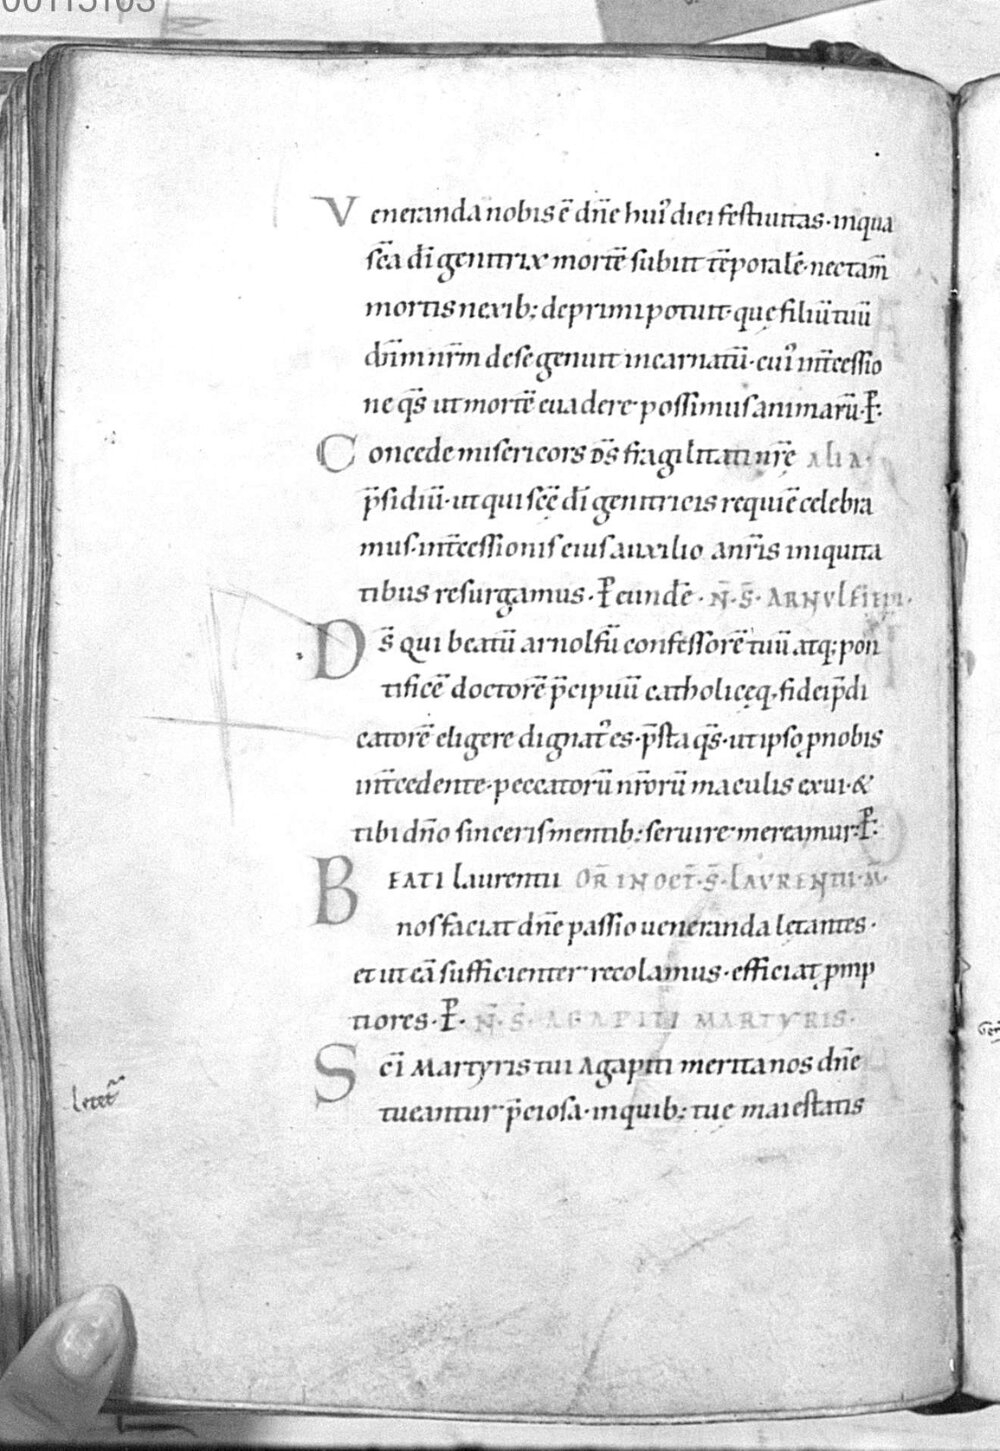 00115105
Veneranda nobis ē dn̄e hui᾿ diei festiuitas· inqua
sc̄a dī genitrix mortē subiit tēporalē· nec tam̄
mortis nexib; deprimi potuit· quę filiū tuū
dn̄m nr̄m de se genuit incarnatū· cui᾿ int̄cessio
ne qs̄ ut mortē euadere possimus animarū· P̄·
Concede misericors ds̄ fragilitati nr̄e ALIA·
p̄sidiū· ut qui sc̄ę dī genitricis requiē celebra
mus· int̄cessionis eius auxilio a nr̄is iniquita
tibus resurgamus· P̄ eundē· N̄· S̄· ARNVLFI
Ds̄ qui beatū arnolfū confessorē tuū atq; pon
tificē doctorē p̄cipuū catholicęq· fidei p̄di
catorē eligere dignat᾿ es· p̄sta qs̄· ut ipso ꝓ nobis
int̄cedente· peccatorū nr̄orū maculis exui· &
tibi dn̄o sincerismentib; seruire mereamur· P̄·
BEATI Laurentii OR̄ IN OCT̄· S̄· LAVRENTII· M̄·
nos faciat dn̄e passio ueneranda lętantes·
et ut eā sufficienter recolamus· efficiat ꝓmp
tiores· P̄· N̄· S̄· AGAPITI MARTYRIS·
Sc̄i Martyris tui Agapiti merita nos dn̄e
tueantur p̄ciosa· inquib; tuę maiestatis